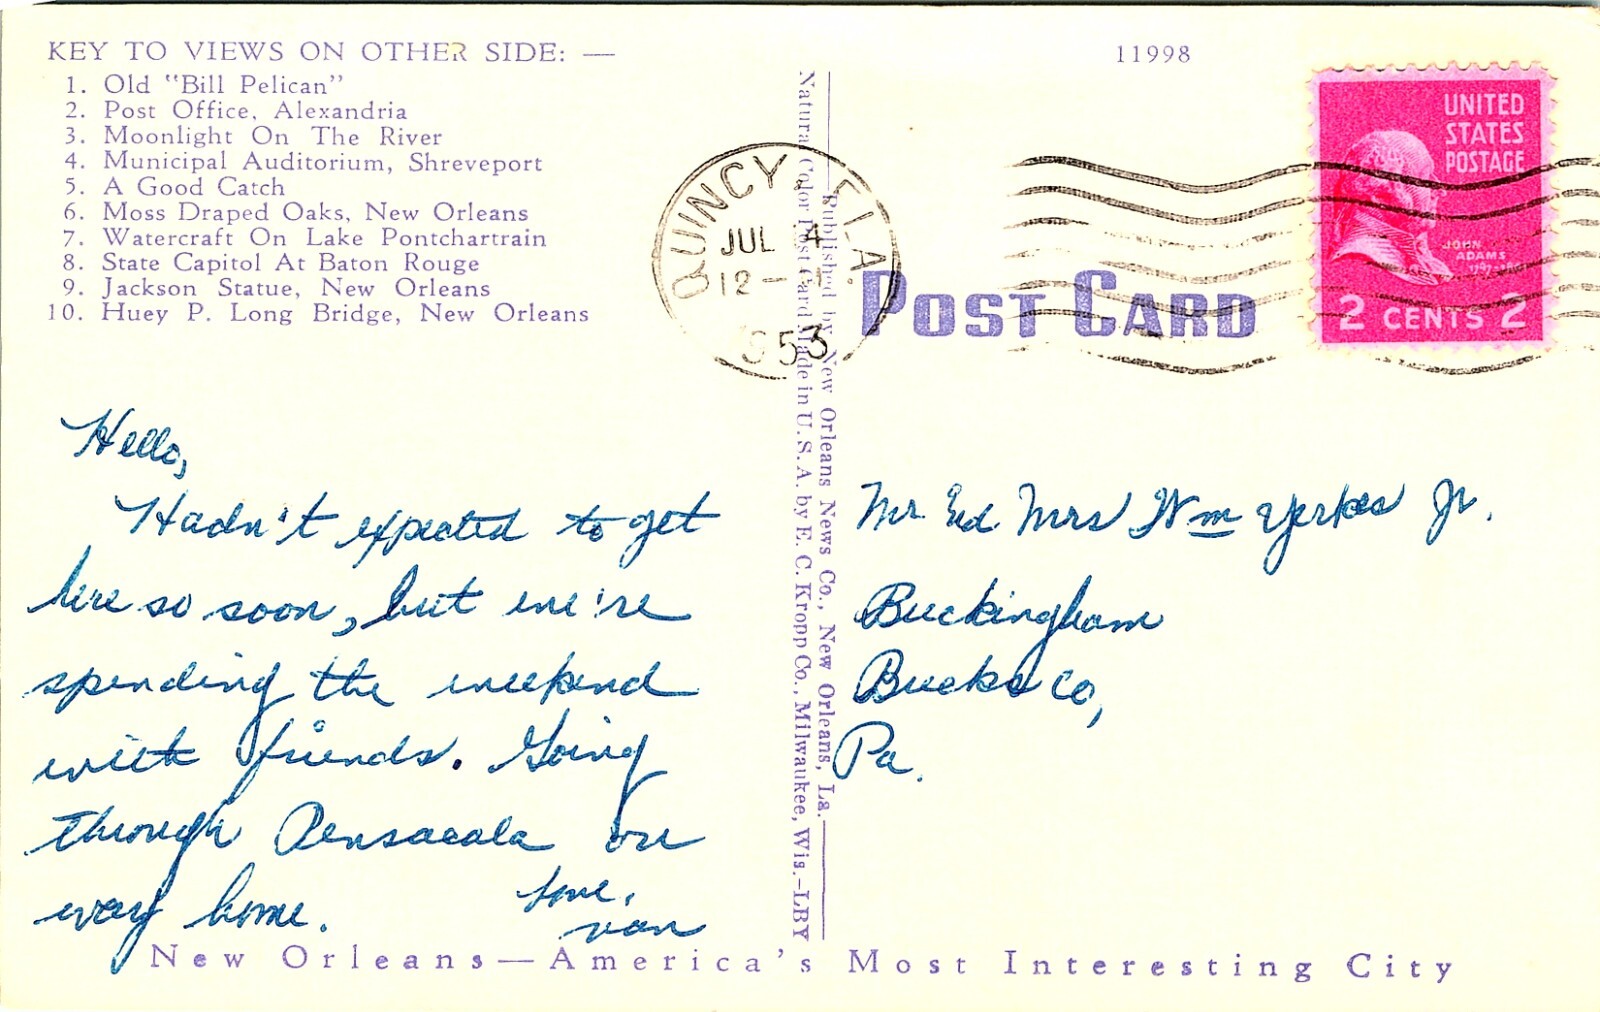 KEY TO VIEWS ON OTHER SIDE: —
1. Old "Bill Pelican"
2. Post Office, Alexandria
3. Moonlight On The River
4. Municipal Auditorium, Shreveport
5. A Good Catch
6. Moss Draped Oaks, New Orleans
7. Watercraft On Lake Pontchartrain
8. State Capitol At Baton Rouge
9. Jackson Statue, New Orleans
10. Huey P. Long Bridge, New Orleans
Hello,
Hadn't expected to get
here so soon, but we're
spending the weekend
with friends. Going
through Pensacola on
way home.
Love,
Van
Published by New Orleans News Co., New Orleans, La.
Natural Color Post Card Made in U. S. A. by E. C. Kropp Co., Milwaukee, Wis.-LBY
11998
QUINCY, FLA.
JUL 4
12 –
1953
POST CARD
UNITED
STATES
POSTAGE
JOHN
ADAMS
2 CENTS 2
Mr. Mrs Wm Yerkes Jr.
Buckingham
Bucks Co,
Pa.
New Orleans—America's Most Interesting City